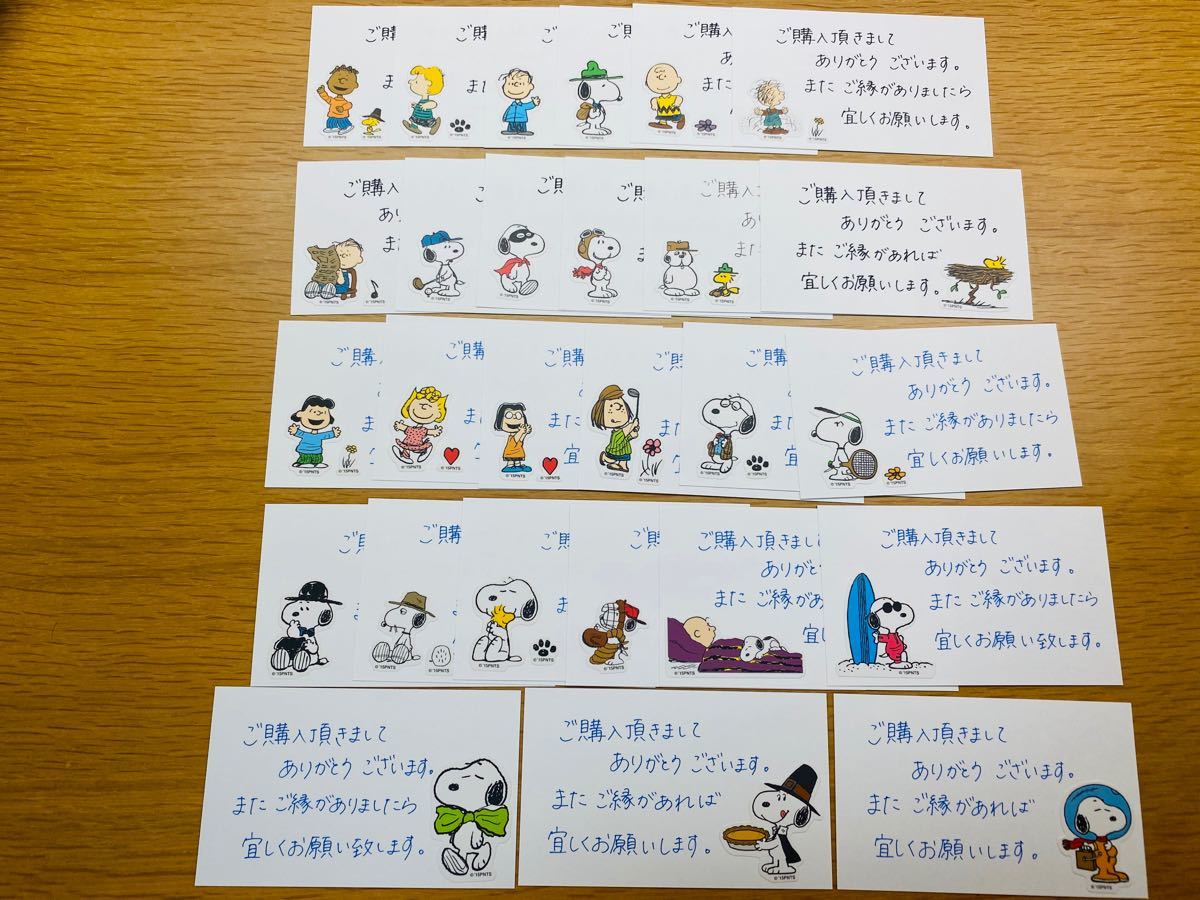 ご
ご
また
ご
ご購入
あ
また
ご購入頂きまして
ありがとう ございます。
また ご縁がありましたら
宜しくお願いします。
©'15PNTS
©'15PNTS
©'15PNTS
©'15PNTS
©'15PNTS
©'15PNTS
ご購入
あり
また
ご
ご
ご購入
また
ご購入頂きまして
ありがとう ございます。
また ご縁があれば
宜しくお願いします。
©'15PNTS
©'15PNTS
©'15PNTS
©'15PNTS
©'15PNTS
©'15PNTS
ご購
ご購
ま
ご購
また
宜
ご購
ご購
また
ご購入頂きまして
ありがとう ございます。
また ご縁がありましたら
宜しくお願いします。
©'15PNTS
©'15PNTS
©'15PNTS
©'15PNTS
©'15PNTS
©'15PNTS
ご
ご購
ご
ご購
ご購入頂きまし
ありがとう
また ご縁があ
宜
ご購入頂きまして
ありがとう ございます。
また ご縁がありましたら
宜しくお願い致します。
©'15PNTS
©'15PNTS
©'15PNTS
©'15PNTS
©'15PNTS
©'15PNTS
ご購入頂きまして
ありがとう ございます。
また ご縁がありましたら
宜しくお願い致します。
©'15PNTS
ご購入頂きまして
ありがとう ございます。
また ご縁があれば
宜しくお願いします。
©'15PNTS
ご購入頂きまして
ありがとう ございます。
また ご縁があれば
宜しくお願いします。
©'15PNTS